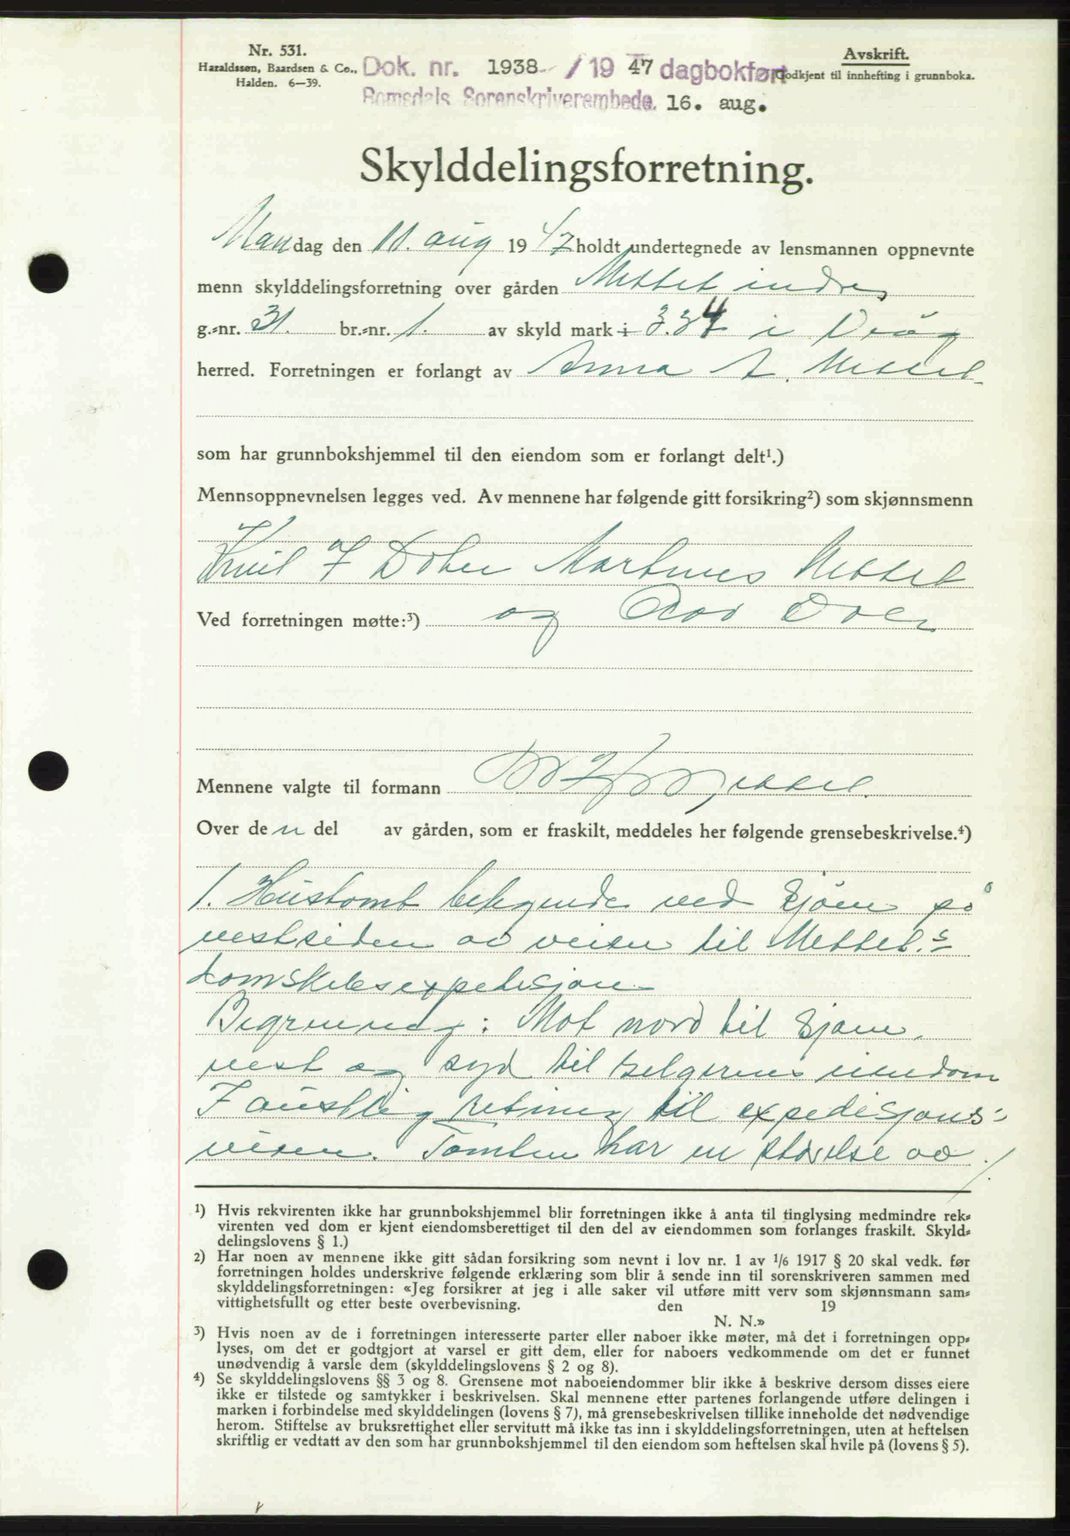 Nr. 531.
Haraldssøn, Baardsen & Co.,
Halden. 6—39.
Dok. nr. 1938 / 19 47 dagbokført
Romsdals Sorenskriverembede. 16. aug.
Avskrift.
Godkjent til innhefting i grunnboka.
Skylddelingsforretning.
Mandag den 11. aug 1947 holdt undertegnede av lensmannen oppnevnte
menn skylddelingsforretning over gården Mittet indre
g.-nr. 31. br.-nr. 1. av skyld mark i 3.34 i Viåg
herred. Forretningen er forlangt av Anna A. Mittet
som har grunnbokshjemmel til den eiendom som er forlangt delt¹.)
Mennsoppnevnelsen legges ved. Av mennene har følgende gitt forsikring²) som skjønnsmenn
Mittet
Ved forretningen møtte:³) og
Mennene valgte til formann Mittet
Over den del av gården, som er fraskilt, meddeles her følgende grensebeskrivelse.⁴)
1. Hustomt ved sjøen på
vestsiden av veien til Mittet.s
domskibsexpedisjon
Begrensing: Mot nord til sjøen,
vest og syd til selgerens eiendom
I austlig retning til expedisjons-
veien. Tomten har en størelse av ./.
¹) Hvis rekvirenten ikke har grunnbokshjemmel blir forretningen ikke å anta til tinglysing medmindre rek-
virenten ved dom er kjent eiendomsberettiget til den del av eiendommen som forlanges fraskilt. Skyld-
delingslovens § 1.)
²) Har noen av mennene ikke gitt sådan forsikring som nevnt i lov nr. 1 av 1/6 1917 § 20 skal vedk. før
forretningen holdes underskrive følgende erklæring som blir å sende inn til sorenskriveren sammen med
skylddelingsforretningen: «Jeg forsikrer at jeg i alle saker vil utføre mitt verv som skjønnsmann sam-
vittighetsfullt og etter beste overbevisning. den 19
N. N.»
³) Hvis noen av de i forretningen interesserte parter eller naboer ikke møter, må det i forretningen opp-
lyses, om det er godtgjort at varsel er gitt dem, eller for naboers vedkommende om det er funnet
unødvendig å varsle dem (skylddelingslovens § 2 og 8).
⁴) Se skylddelingslovens §§ 3 og 8. Grensene mot naboeiendommer blir ikke å beskrive dersom disses eiere
ikke er tilstede og samtykker i beskrivelsen. Skal mennene etter partenes forlangende utføre delingen i
marken i forbindelse med skylddelingen (lovens § 7), må grensebeskrivelsen tillike inneholde det nødvendige
herom. Stiftelse av bruksrettighet eller servitutt må ikke tas inn i skylddelingsforretningen, uten at heftelsen
skriftlig er vedtatt av den som har grunnbokshjemmel til den eiendom som heftelsen skal hvile på (lovens § 5).